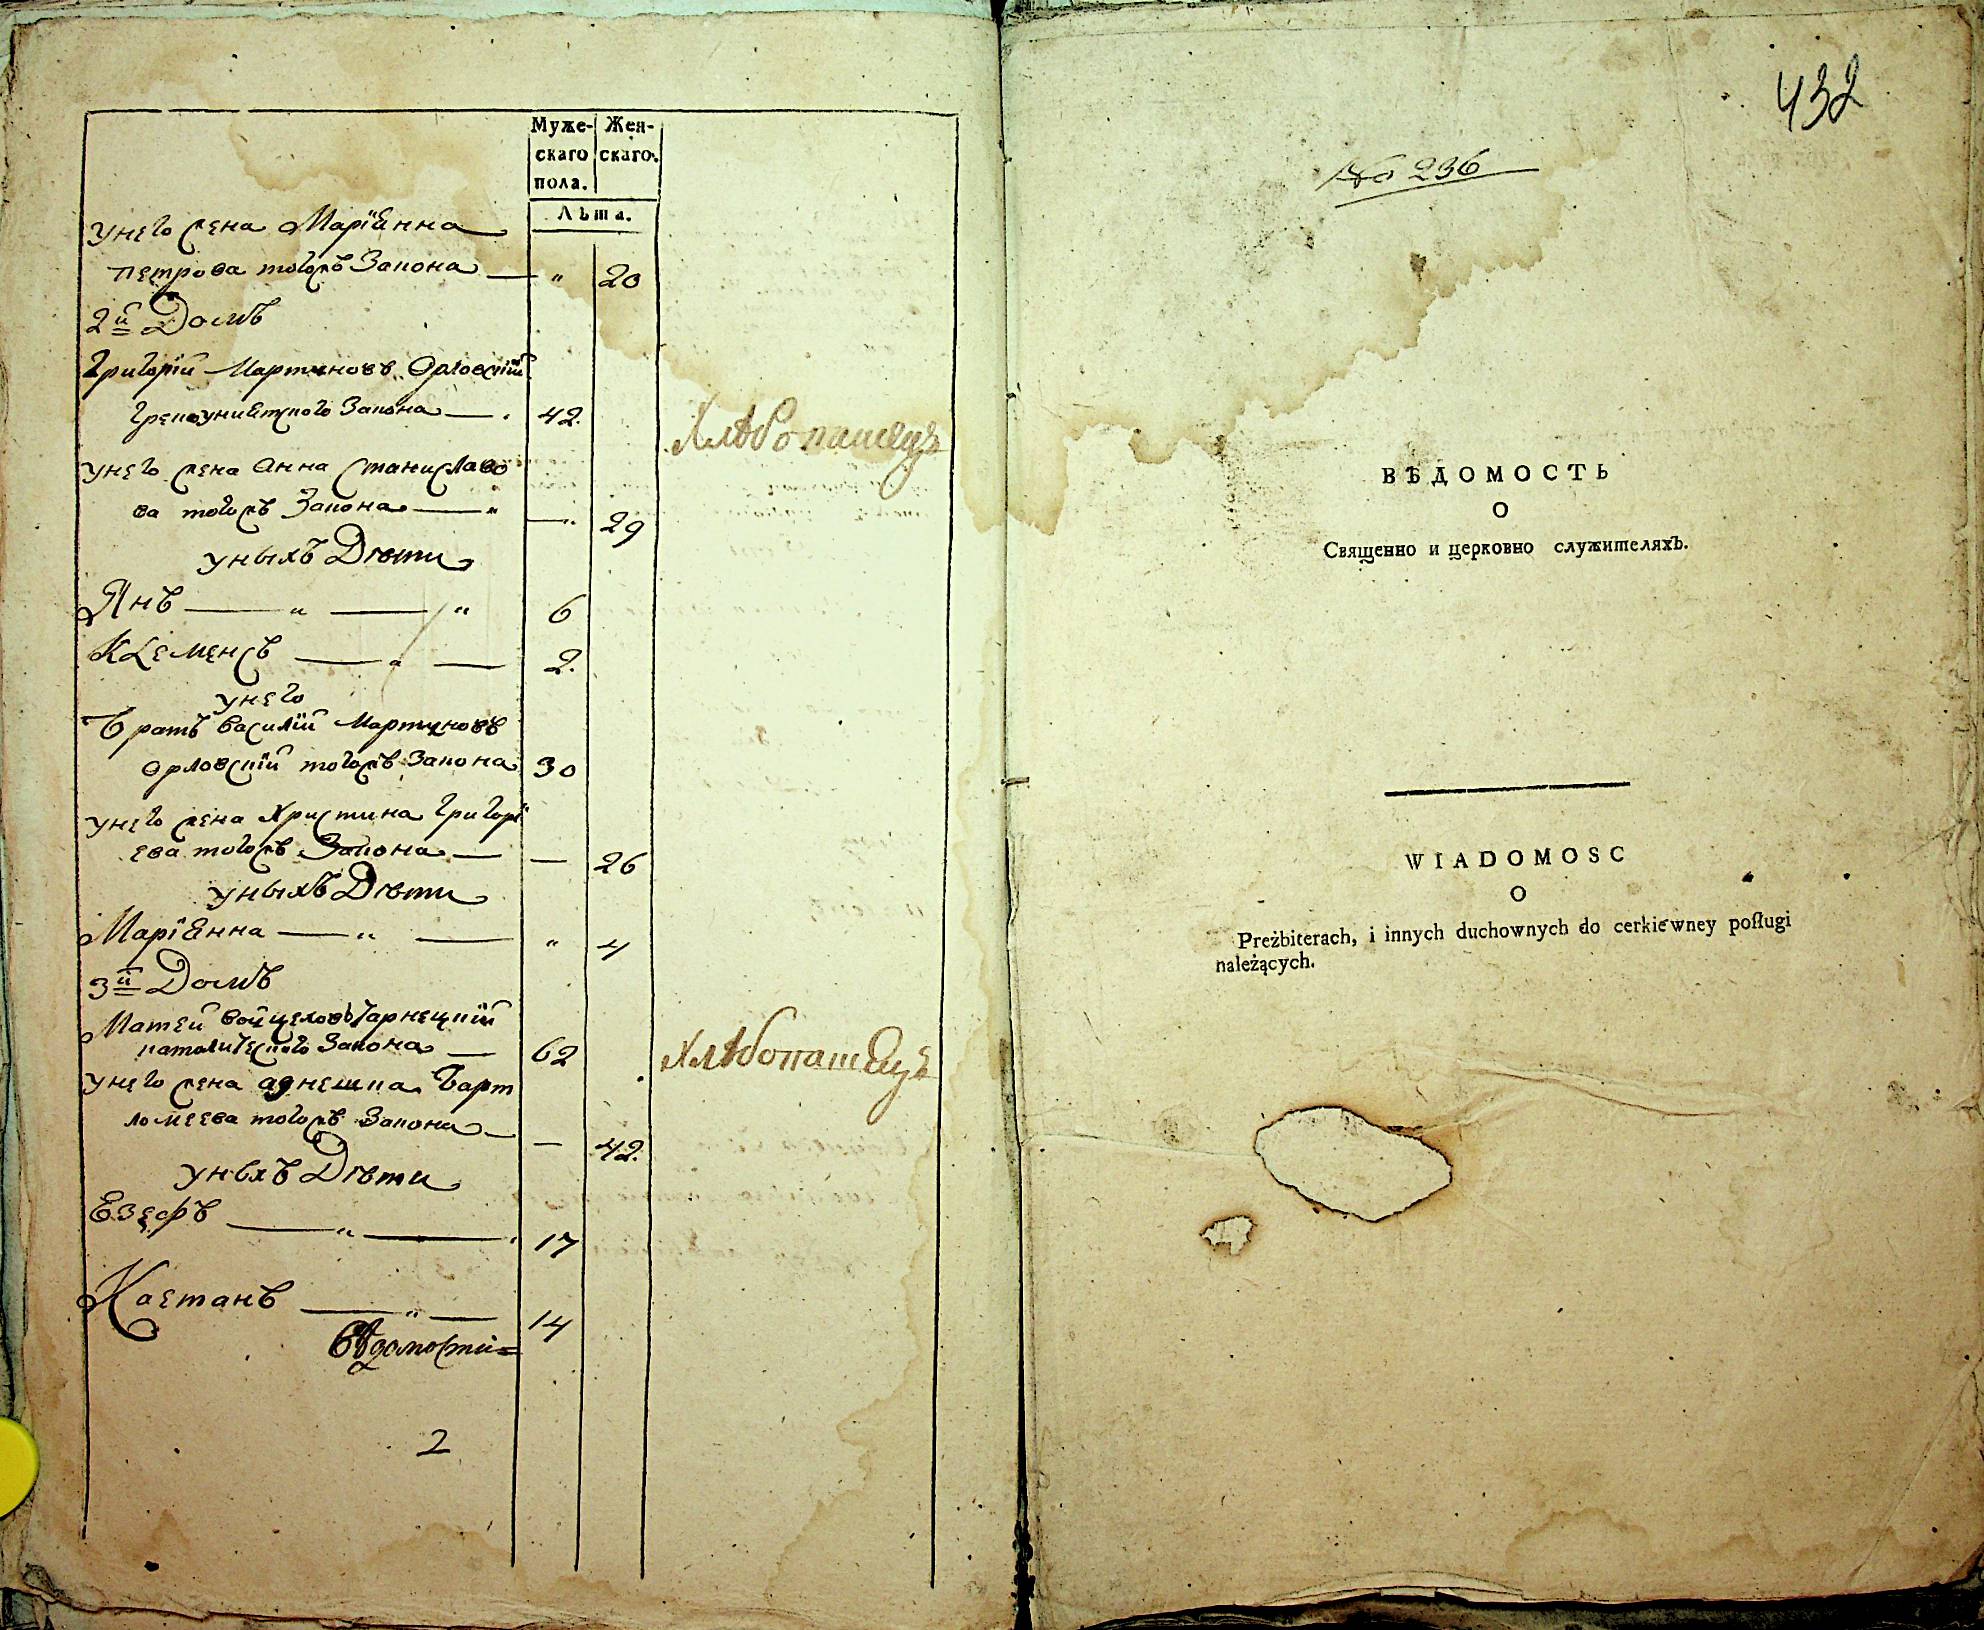 Муже- Жен-
скаго скаго.
пола.
Лѣта.
унего жена Маріанна
петрова тогожъ Закона — " 20
2й Домъ
Григорій Мартиновъ Орловскій
Грекоуниятского Закона — 42. Хлѣбопашецъ
унего жена Анна Станиславо
ва тогожъ Закона — — 29
уныхъ Дѣти
Янъ — " — " 6
Клеменсъ — " — 2.
унего
Братъ Василій Мартиновъ
Орловскій тогожъ Закона 30
унего жена Христина Григорі
ева тогожъ Закона — — 26
уныхъ Дѣти
Маріанна — " — " 4
3й Домъ
Матей Войцеховъ Чарнецкій
католического Закона — 62 Хлѣбопашецъ
унего жена Агнешка Барт
ломеева тогожъ Закона — — 42.
уныхъ Дѣти
Езефъ — " — 17
Каетанъ — " — 14
Вѣдомости=
2
432
No 236
ВѢДОМОСТЬ
О
Священно и церковно служителяхъ.
WIADOMOSC
O
Preżbiterach, i innych duchownych do cerkiewney posługi
należących.